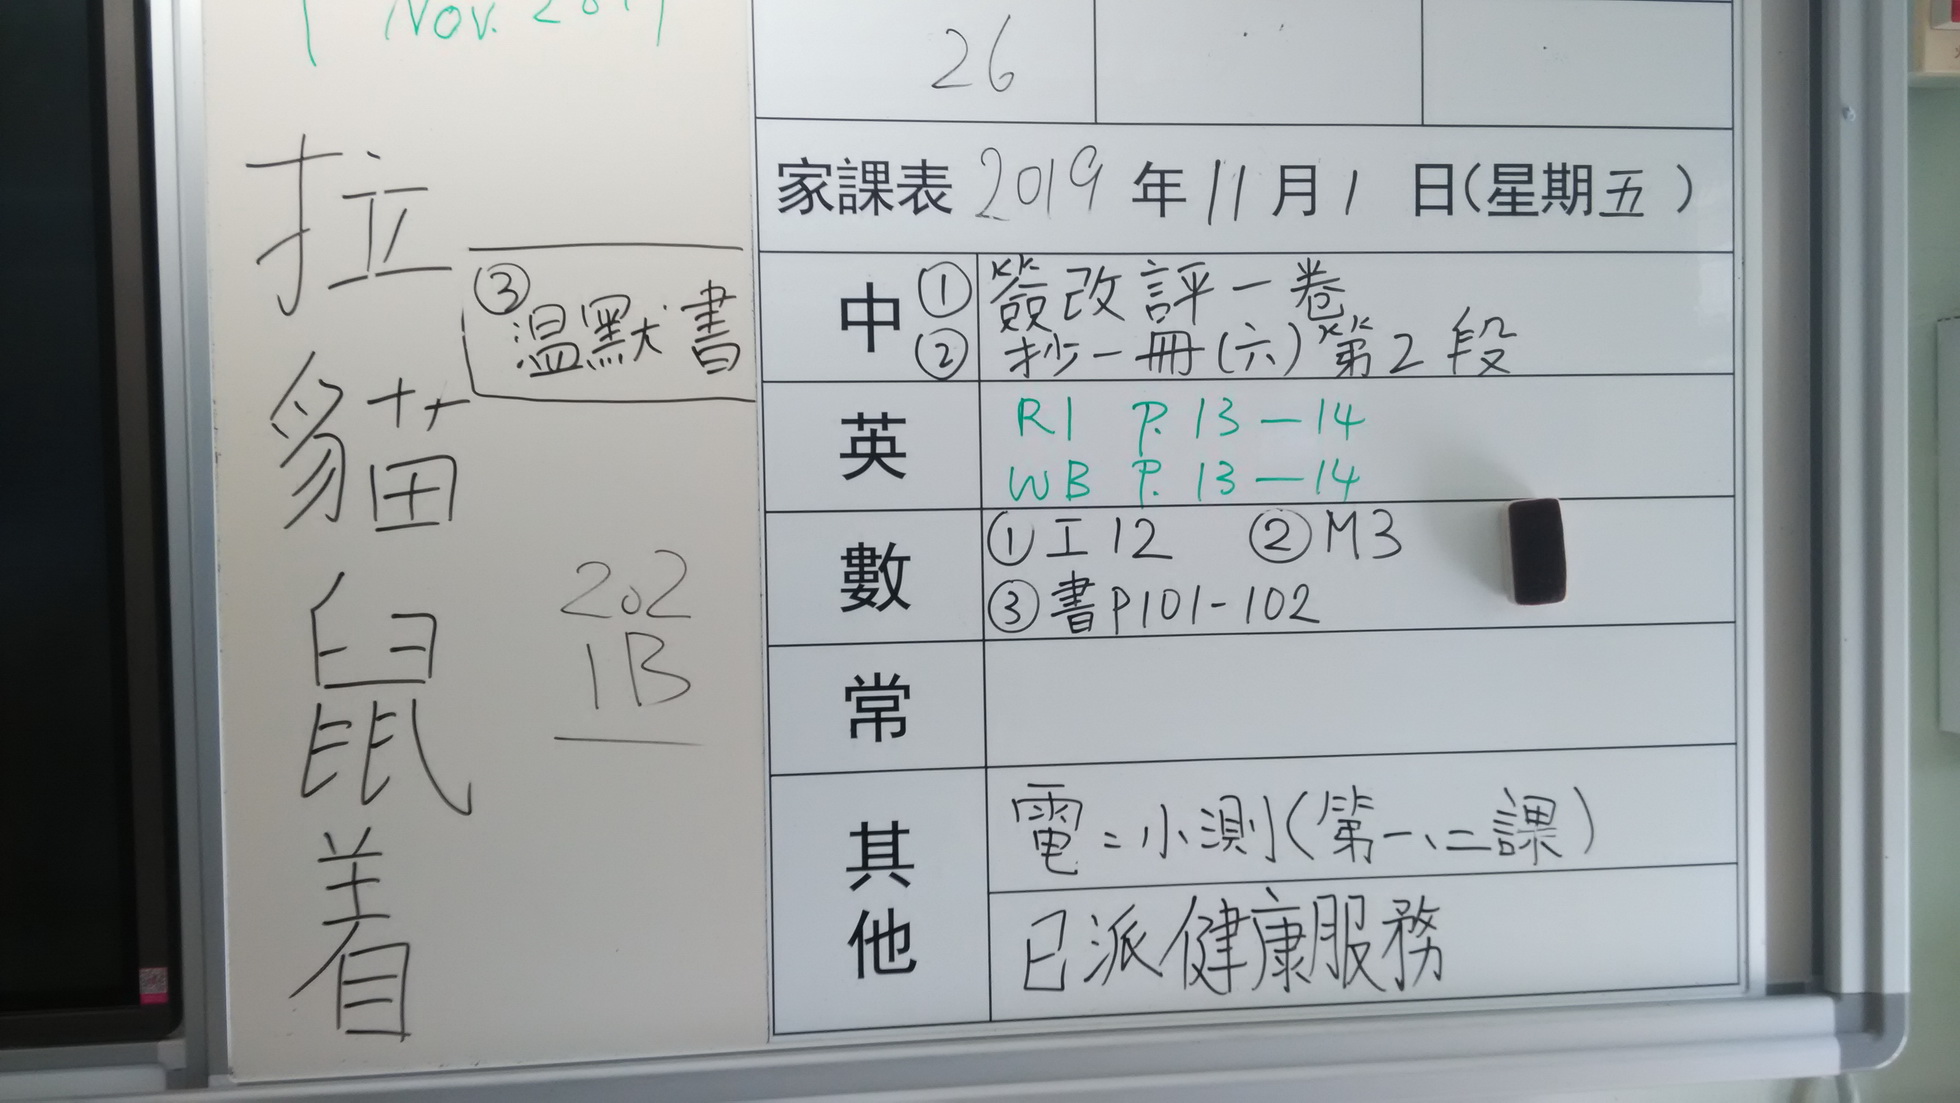 1 Nov. 2019
26
家課表 2019 年 11 月 1 日(星期五)
中 ① 簽改評一卷
② 抄一冊(六)第2段
③ 溫默書
英
R1 P. 13—14
WB P. 13—14
數
① I 12 ② M3
③ 書P101-102
常
其他
電:小測(第一、二課)
已派健康服務
拉
貓
鼠
着
202
1B